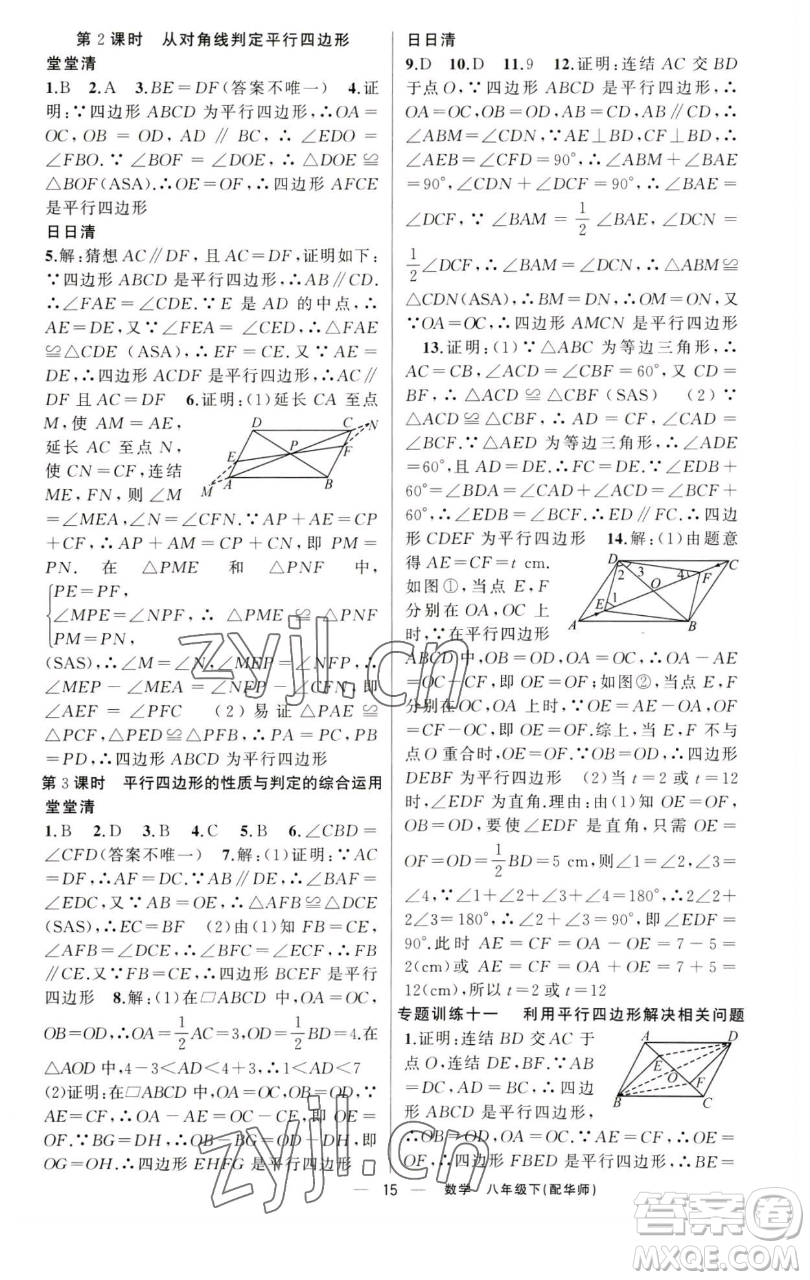 第2课时　从对角线判定平行四边形
堂堂清
1.B　2.A　3.BE=DF(答案不唯一)　4.证
明:∵四边形 ABCD 为平行四边形,∴OA=
OC,OB=OD,AD∥BC,∴∠EDO=
∠FBO.∵∠BOF=∠DOE,∴△DOE≌
△BOF(ASA).∴OE=OF,∴四边形 AFCE
是平行四边形
日日清
5.解:猜想 AC∥DF,且 AC=DF,证明如下:
∵四边形 ABCD 是平行四边形,∴AB∥CD.
∴∠FAE=∠CDE.∵E 是 AD 的中点,∴
AE=DE,又∵∠FEA=∠CED,∴△FAE
≌△CDE (ASA),∴EF=CE.又∵AE=
DE,∴四边形 ACDF 是平行四边形,∴AC∥
DF 且 AC=DF　6.证明:(1)延长 CA 至点
M,使 AM=AE,
延长 AC 至点 N,
使 CN=CF,连结
ME,FN,则∠M
D C N
E P F
M A B
=∠MEA,∠N=∠CFN.∵AP+AE=CP
+CF,∴AP+AM=CP+CN,即 PM=
PN. 在 △PME 和 △PNF 中,
PE=PF,
∠MPE=∠NPF,∴△PME≌△PNF
PM=PN,
(SAS),∴∠M=∠N,∴∠MEP=∠NFP,∴
∠MEP-∠MEA=∠NFP-∠CFN,即
∠AEF=∠PFC　(2)易证△PAE≌
△PCF,△PED≌△PFB,∴PA=PC,PB
=PD,∴四边形 ABCD 为平行四边形
第3课时　平行四边形的性质与判定的综合运用
堂堂清
1.B　2.D　3.B　4.C　5.B　6.∠CBD=
∠CFD(答案不唯一)　7.解:(1)证明:∵AC
=DF,∴AF=DC.∵AB∥DE,∴∠BAF=
∠EDC,又∵AB=DE,∴△AFB≌△DCE
(SAS),∴EC=BF　(2)由(1)知 FB=CE,
∠AFB=∠DCE,∴∠BFC=∠ECF,∴FB
∥CE.又∵FB=CE,∴四边形 BCEF 是平行
四边形　8.解:(1)在▱ABCD 中,OA=OC,
OB=OD,∴OA=1/2AC=3,OD=1/2BD=4.在
△AOD 中,4-3<AD<4+3,∴1<AD<7
(2)证明:在▱ABCD 中,OA=OC,OB=OD,∵
AE=CF,∴OA-AE=OC-CF,即 OE=
OF.∵BG=DH,∴OB-BG=OD-DH,即
OG=OH,∴四边形 EHFG 是平行四边形
日日清
9.D　10.D　11.9　12.证明:连结 AC 交 BD
于点 O,∵四边形 ABCD 是平行四边形,∴
OA=OC,OB=OD,AB=CD,AB∥CD,∴
∠ABM=∠CDN,∵AE⊥BD,CF⊥BD,∴
∠AEB=∠CFD=90°,∴∠ABM+∠BAE
=90°,∠CDN+∠DCF=90°,∴∠BAE=
∠DCF,∵∠BAM=1/2∠BAE,∠DCN=
1/2∠DCF,∴∠BAM=∠DCN,∴△ABM≌
△CDN(ASA),∴BM=DN,∴OM=ON,又
∵OA=OC,∴四边形 AMCN 是平行四边形
13.证明:(1)∵△ABC 为等边三角形,∴
AC=CB,∠ACD=∠CBF=60°,又 CD=
BF,∴△ACD≌△CBF(SAS)　(2)∵
△ACD≌△CBF,∴AD=CF,∠CAD=
∠BCF.∵△AED 为等边三角形,∴∠ADE
=60°,且 AD=DE.∴FC=DE.∵∠EDB+
60°=∠BDA=∠CAD+∠ACD=∠BCF+
60°,∴∠EDB=∠BCF.∴ED∥FC.∴四边
形 CDEF 为平行四边形　14.解:(1)由题意
得 AE=CF=t cm.
如图①,当点 E,F
分别在 OA,OC 上
时,∵在平行四边形
D C
2 3 4 F
O
E 1
A B
ABCD 中,OB=OD,OA=OC,∴OA-AE
=OC-CF,即 OE=OF;如图②,当点 E,F
分别在 OC,OA 上时,∵OE=AE-OA,OF
=CF-OC,∴OE=OF.综上,当 E,F 不与
点 O 重合时,∵OB=OD,OE=OF,∴四边形
DEBF 为平行四边形　(2)当 t=2 或 t=12
时,∠EDF 为直角.理由:由(1)知 OE=OF,
OB=OD,要使∠EDF 是直角,只需 OE=
OF=OD=1/2BD=5 cm,则∠1=∠2,∠3=
∠4,∵∠1+∠2+∠3+∠4=180°,∴2∠2+
2∠3=180°,∴∠2+∠3=90°,即∠EDF=
90°.此时 AE=CF=OA-OE=7-5=
2(cm)或 AE=CF=OA+OE=7+5=
12(cm),所以 t=2 或 t=12
专题训练十一　利用平行四边形解决相关问题
1.证明:连结 BD 交 AC 于
点 O,连结 BF,DE,∵AB
=DC,AD=BC,∴四边
形 ABCD 是平行四边形,
A D
E
O
F
B C
∴OB=OD,OA=OC,又∵AE=CF,∴OA-
AE=OC-CF,即 OE=OF,∴四边形 BEDF=
15　数学　八年级下(配华师)
zyjl.cn
zyjl.cn
答案圈
MXQE.COM